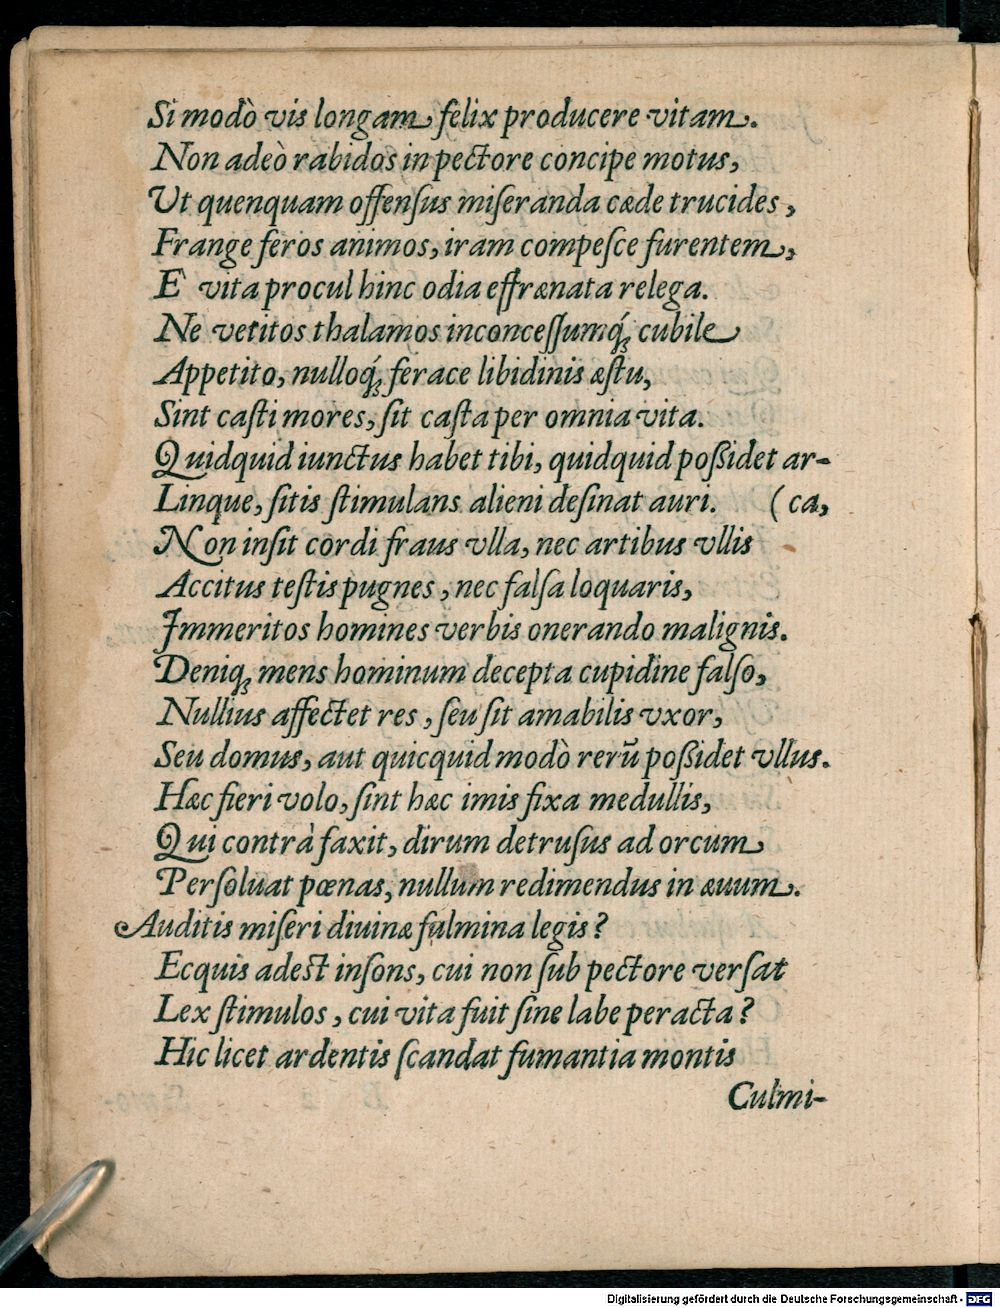 Si modò vis longam felix producere vitam.
Non adeò rabidos in pectore concipe motus,
Ut quenquam offenſus miſeranda cæde trucides,
Frange feros animos, iram compeſce furentem,
E vita procul hinc odia effrænata relega.
Ne vetitos thalamos inconceſſumq́; cubile
Appetito, nulloq́; ferace libidinis æſtu,
Sint caſti mores, ſit caſta per omnia vita.
Quidquid iunctus habet tibi, quidquid poßidet ar-
Linque, ſitis ſtimulans alieni deſinat auri. (ca,
Non inſit cordi fraus vlla, nec artibus vllis
Accitus teſtis pugnes, nec falſa loquaris,
Immeritos homines verbis onerando malignis.
Deniq; mens hominum decepta cupidine falſo,
Nullius affectet res, ſeu ſit amabilis vxor,
Seu domus, aut quicquid modò rerū poßidet vllus.
Hæc fieri volo, ſint hæc imis fixa medullis,
Qui contrà faxit, dirum detruſus ad orcum
Perſoluat pœnas, nullum redimendus in æuum.
Auditis miſeri diuinæ fulmina legis?
Ecquis adeſt inſons, cui non ſub pectore verſat
Lex ſtimulos, cui vita fuit ſine labe peracta?
Hic licet ardentis ſcandat fumantia montis
Culmi-
Digitalisierung gefördert durch die Deutsche Forschungsgemeinschaft - DFG